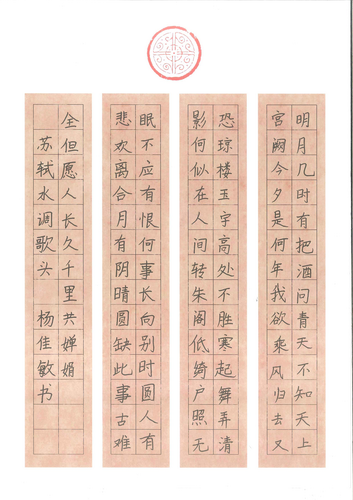 明月几时有把酒问青天不知天上
宫阙今夕是何年我欲乘风归去又
恐琼楼玉宇高处不胜寒起舞弄清
影何似在人间转朱阁低绮户照无
眠不应有恨何事长向别时圆人有
悲欢离合月有阴晴圆缺此事古难
全但愿人长久千里共婵娟
苏轼水调歌头 杨佳敏书